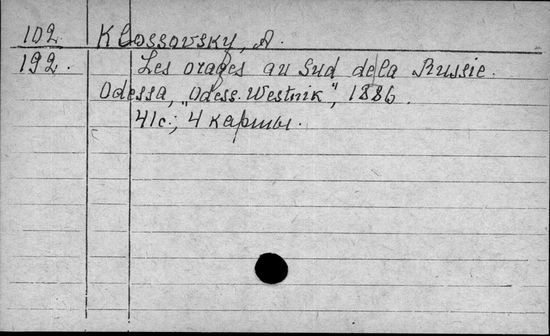 102 Klossovsky, A.
192. Les orages au Sud de la Russie.
Odessa, "Odess. Westnik", 1886.
41 с.; 4 карты.